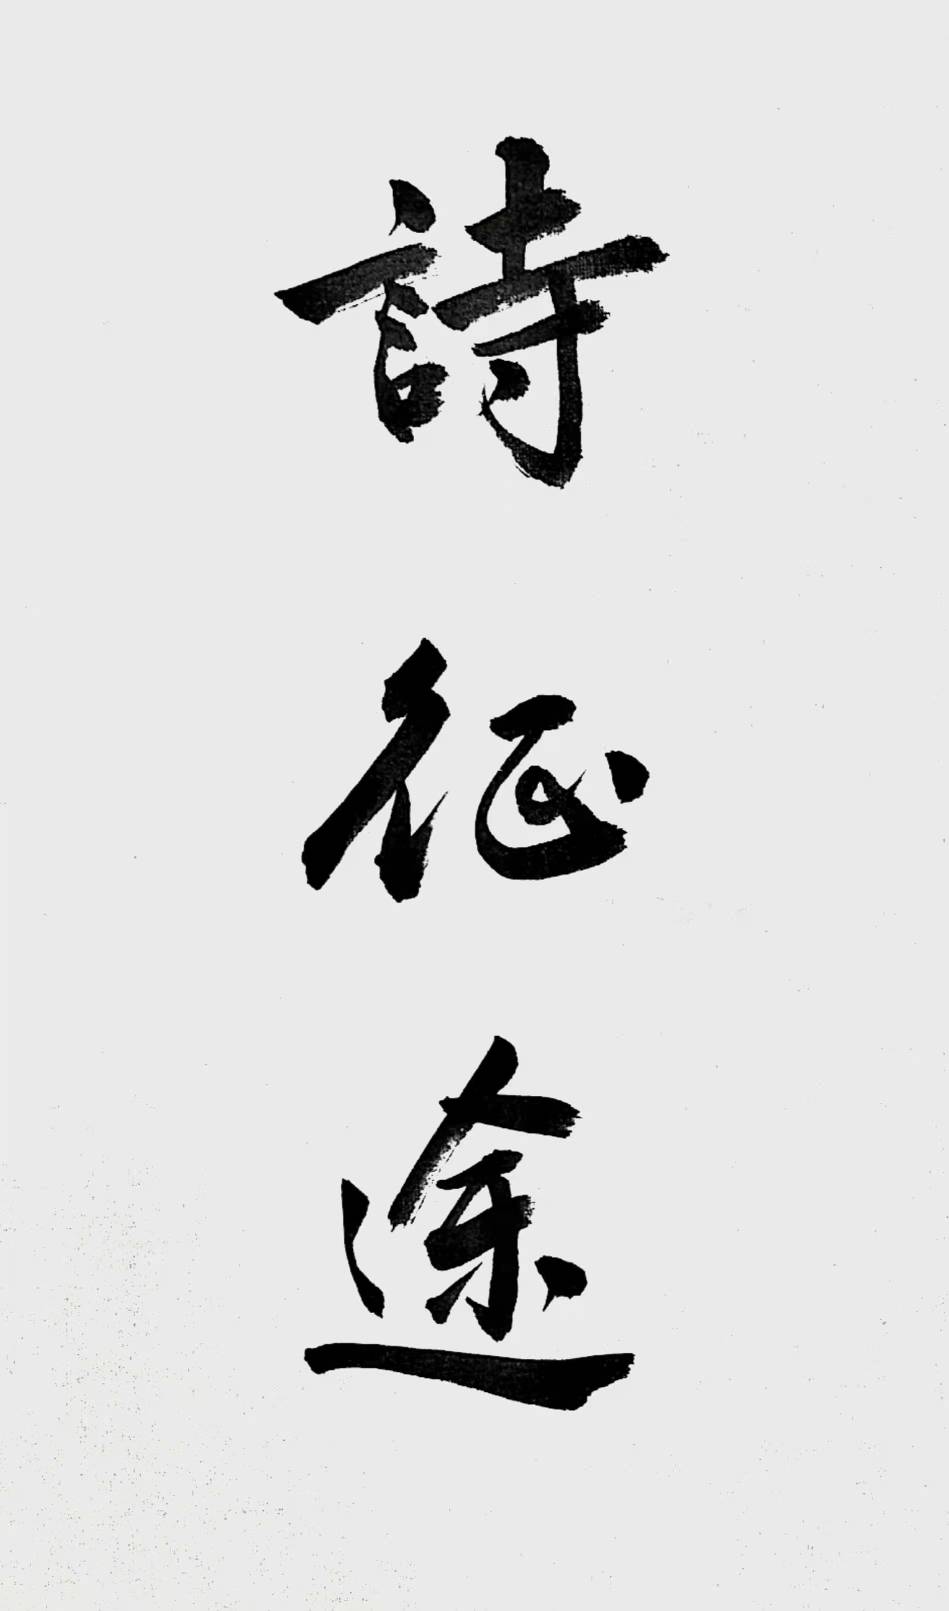 詩征途